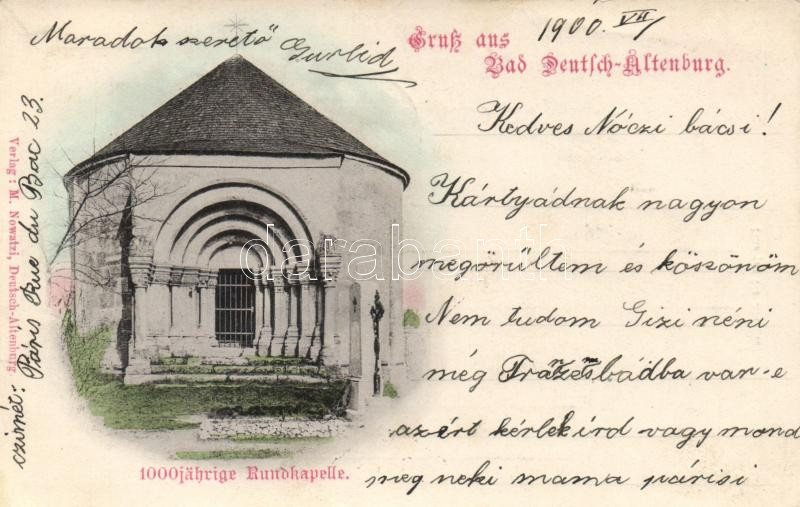 Gruß aus
Bad Deutsch-Altenburg.
1900. VII/1
Kedves Nóczi bácsi!
Kártyádnak nagyon
megörültem és köszönöm
Nem tudom Gizi néni
még Franzensbádba van-e
azért kérlek ird vagy mond
meg neki mama párisi
czimét: Páris Rue du Bac 23.
Maradok szerető
1000jährige Rundkapelle.
Verlag: M. Nowatzi, Deutsch-Altenburg.
darabanth